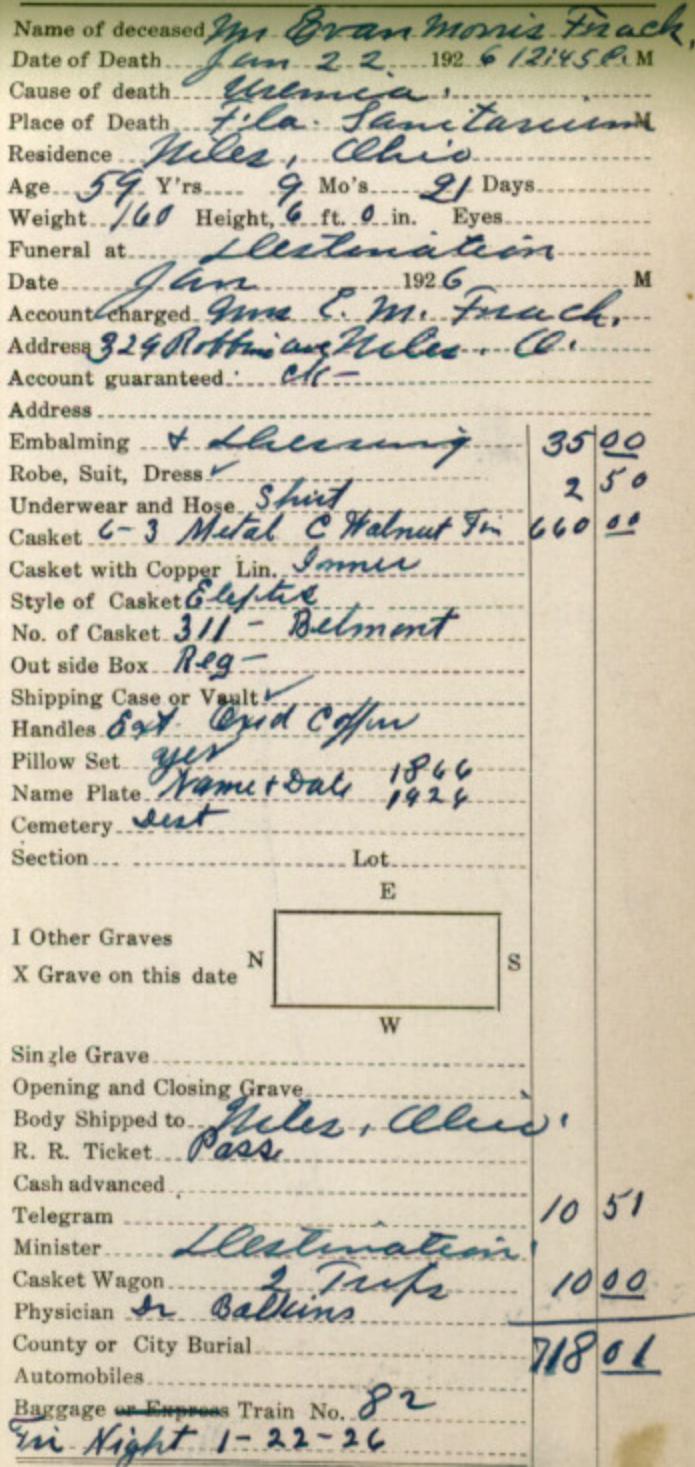 Name of deceased Mr Evan Morris Frack,
Date of Death Jan 22 1926 12:45 P. M
Cause of death Uremia.
Place of Death Fla. Sanitarium M
Residence Niles, Ohio
Age 59 Y'rs 9 Mo's 21 Days
Weight 160 Height, 6 ft. 0 in. Eyes
Funeral at Destination
Date Jan 1926 M
Account charged Mrs E. M. Frack.
Address 329 Robbins ave Niles. O.
Account guaranteed ok -
Address
Embalming & Dressing 35 00
Robe, Suit, Dress ✓ 2 50
Underwear and Hose Shirt
Casket 6-3 Metal C Walnut Fin 660 00
Casket with Copper Lin. Inner
Style of Casket Eleptis
No. of Casket 311 - Belmont
Out side Box Reg -
Shipping Case or Vault ✓
Handles Ext
Pillow Set yes
Name Plate Name + Date 1866
1926
Cemetery Dest
Section Lot
E
I Other Graves
X Grave on this date N S
W
Single Grave
Opening and Closing Grave
Body Shipped to Niles, Ohio.
R. R. Ticket Pass
Cash advanced
Telegram 10 51
Minister Destination
Casket Wagon 2 Trips 10 00
Physician Dr Balkins
County or City Burial 718 01
Automobiles
Baggage or Express Train No. 82
Fri Night 1-22-26